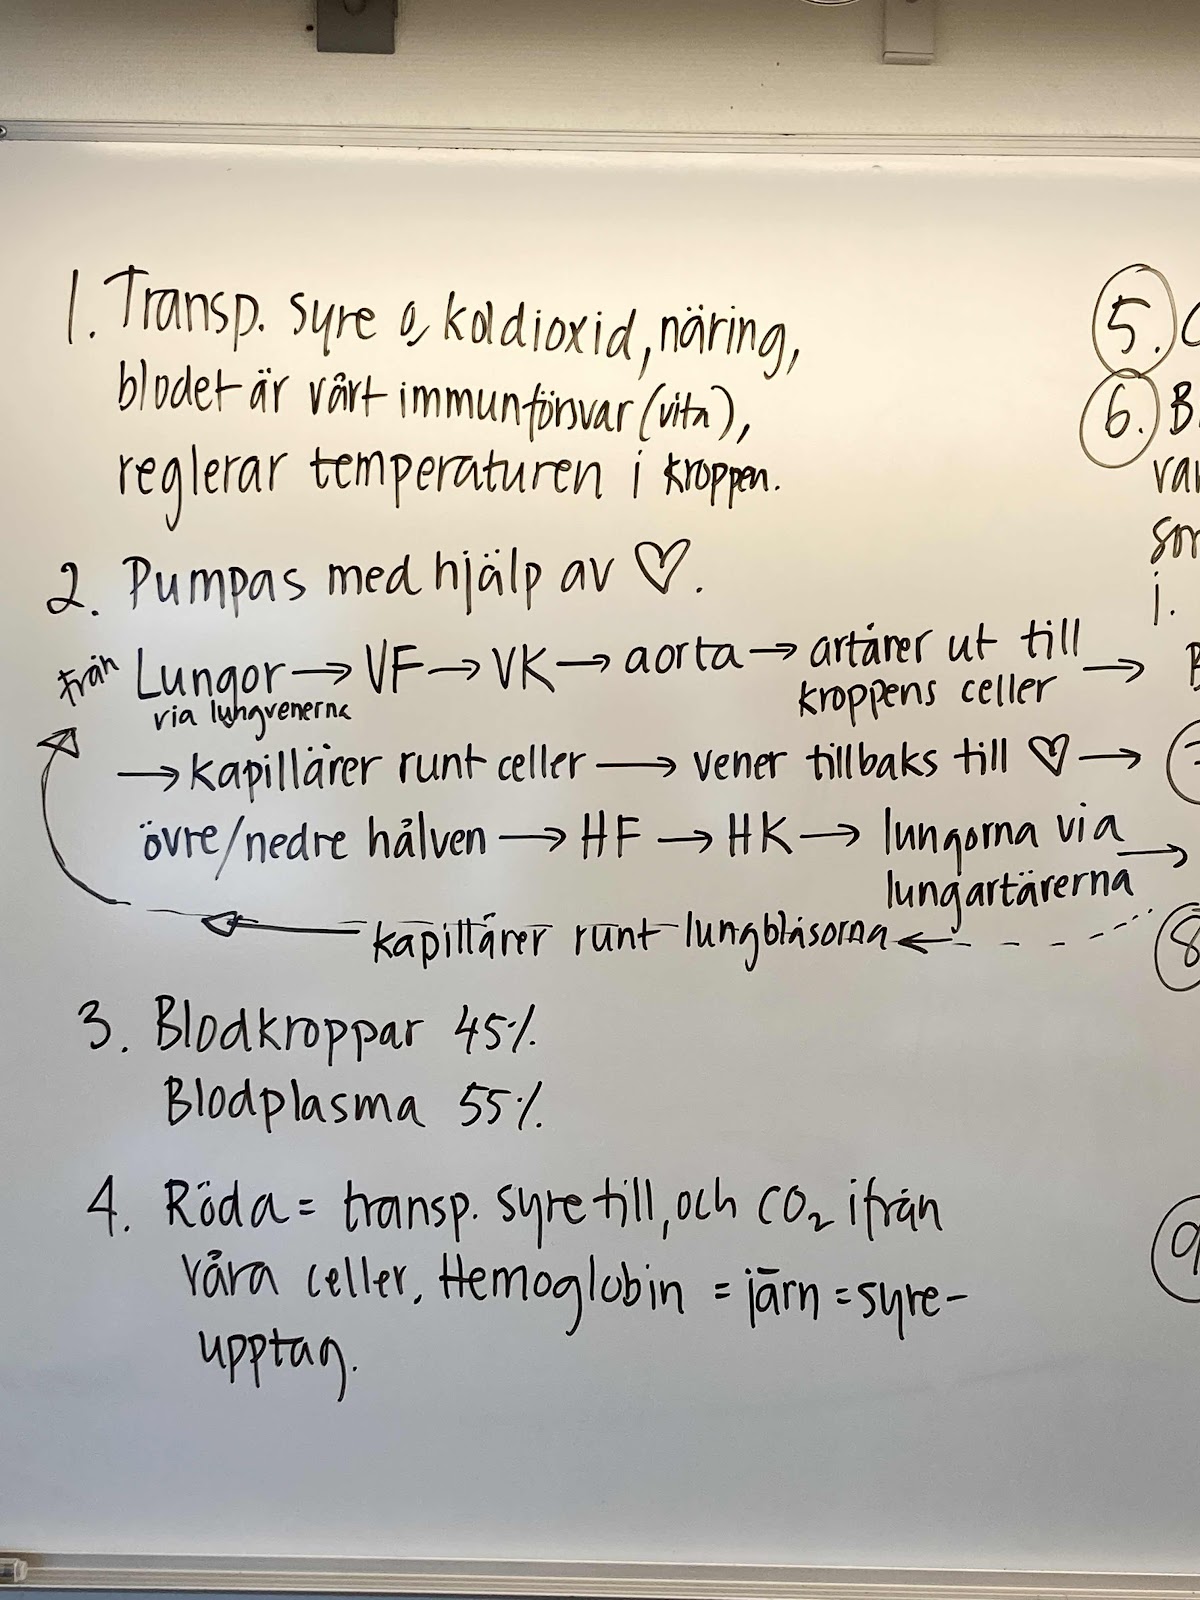 1. Transp. syre o, koldioxid, näring,
blodet är vårt immunförsvar (vita),
reglerar temperaturen i kroppen.
2. Pumpas med hjälp av ♡.
från Lungor → VF → VK → aorta → artärer ut till
via lungvenerna kroppens celler →
→ kapillärer runt celler → vener tillbaks till ♡ →
övre/nedre hålven → HF → HK → lungorna via
lungartärerna →
kapillärer runt lungblåsorna ←
3. Blodkroppar 45%
Blodplasma 55%
4. Röda = transp. syre till, och CO₂ ifrån
våra celler. Hemoglobin = järn = syre-
upptag.
5.
6. B
var
som
i.
8
9